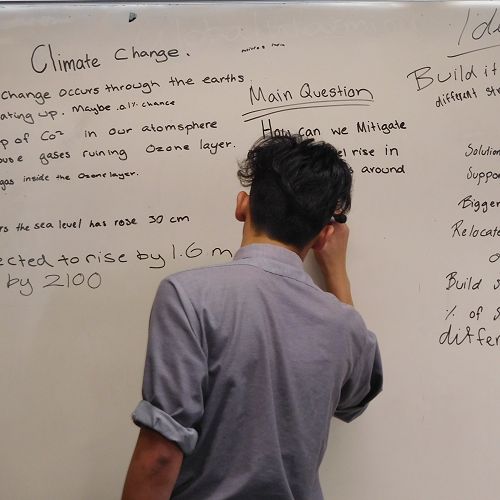 Climate Change.
Change occurs through the earths
ating up. Maybe .01% chance
p of Co² in our atomsphere
gases ruining Ozone layer.
gas inside the Ozone layer.
rs the sea level has rose 30 cm
ected to rise by 1.6 m
by 2100
Main Question
How can we Mitigate
el rise in
around
Ide
Build it
different str
Solution
Suppo
Bigger
Relocate
o
Build s
% of s
differ